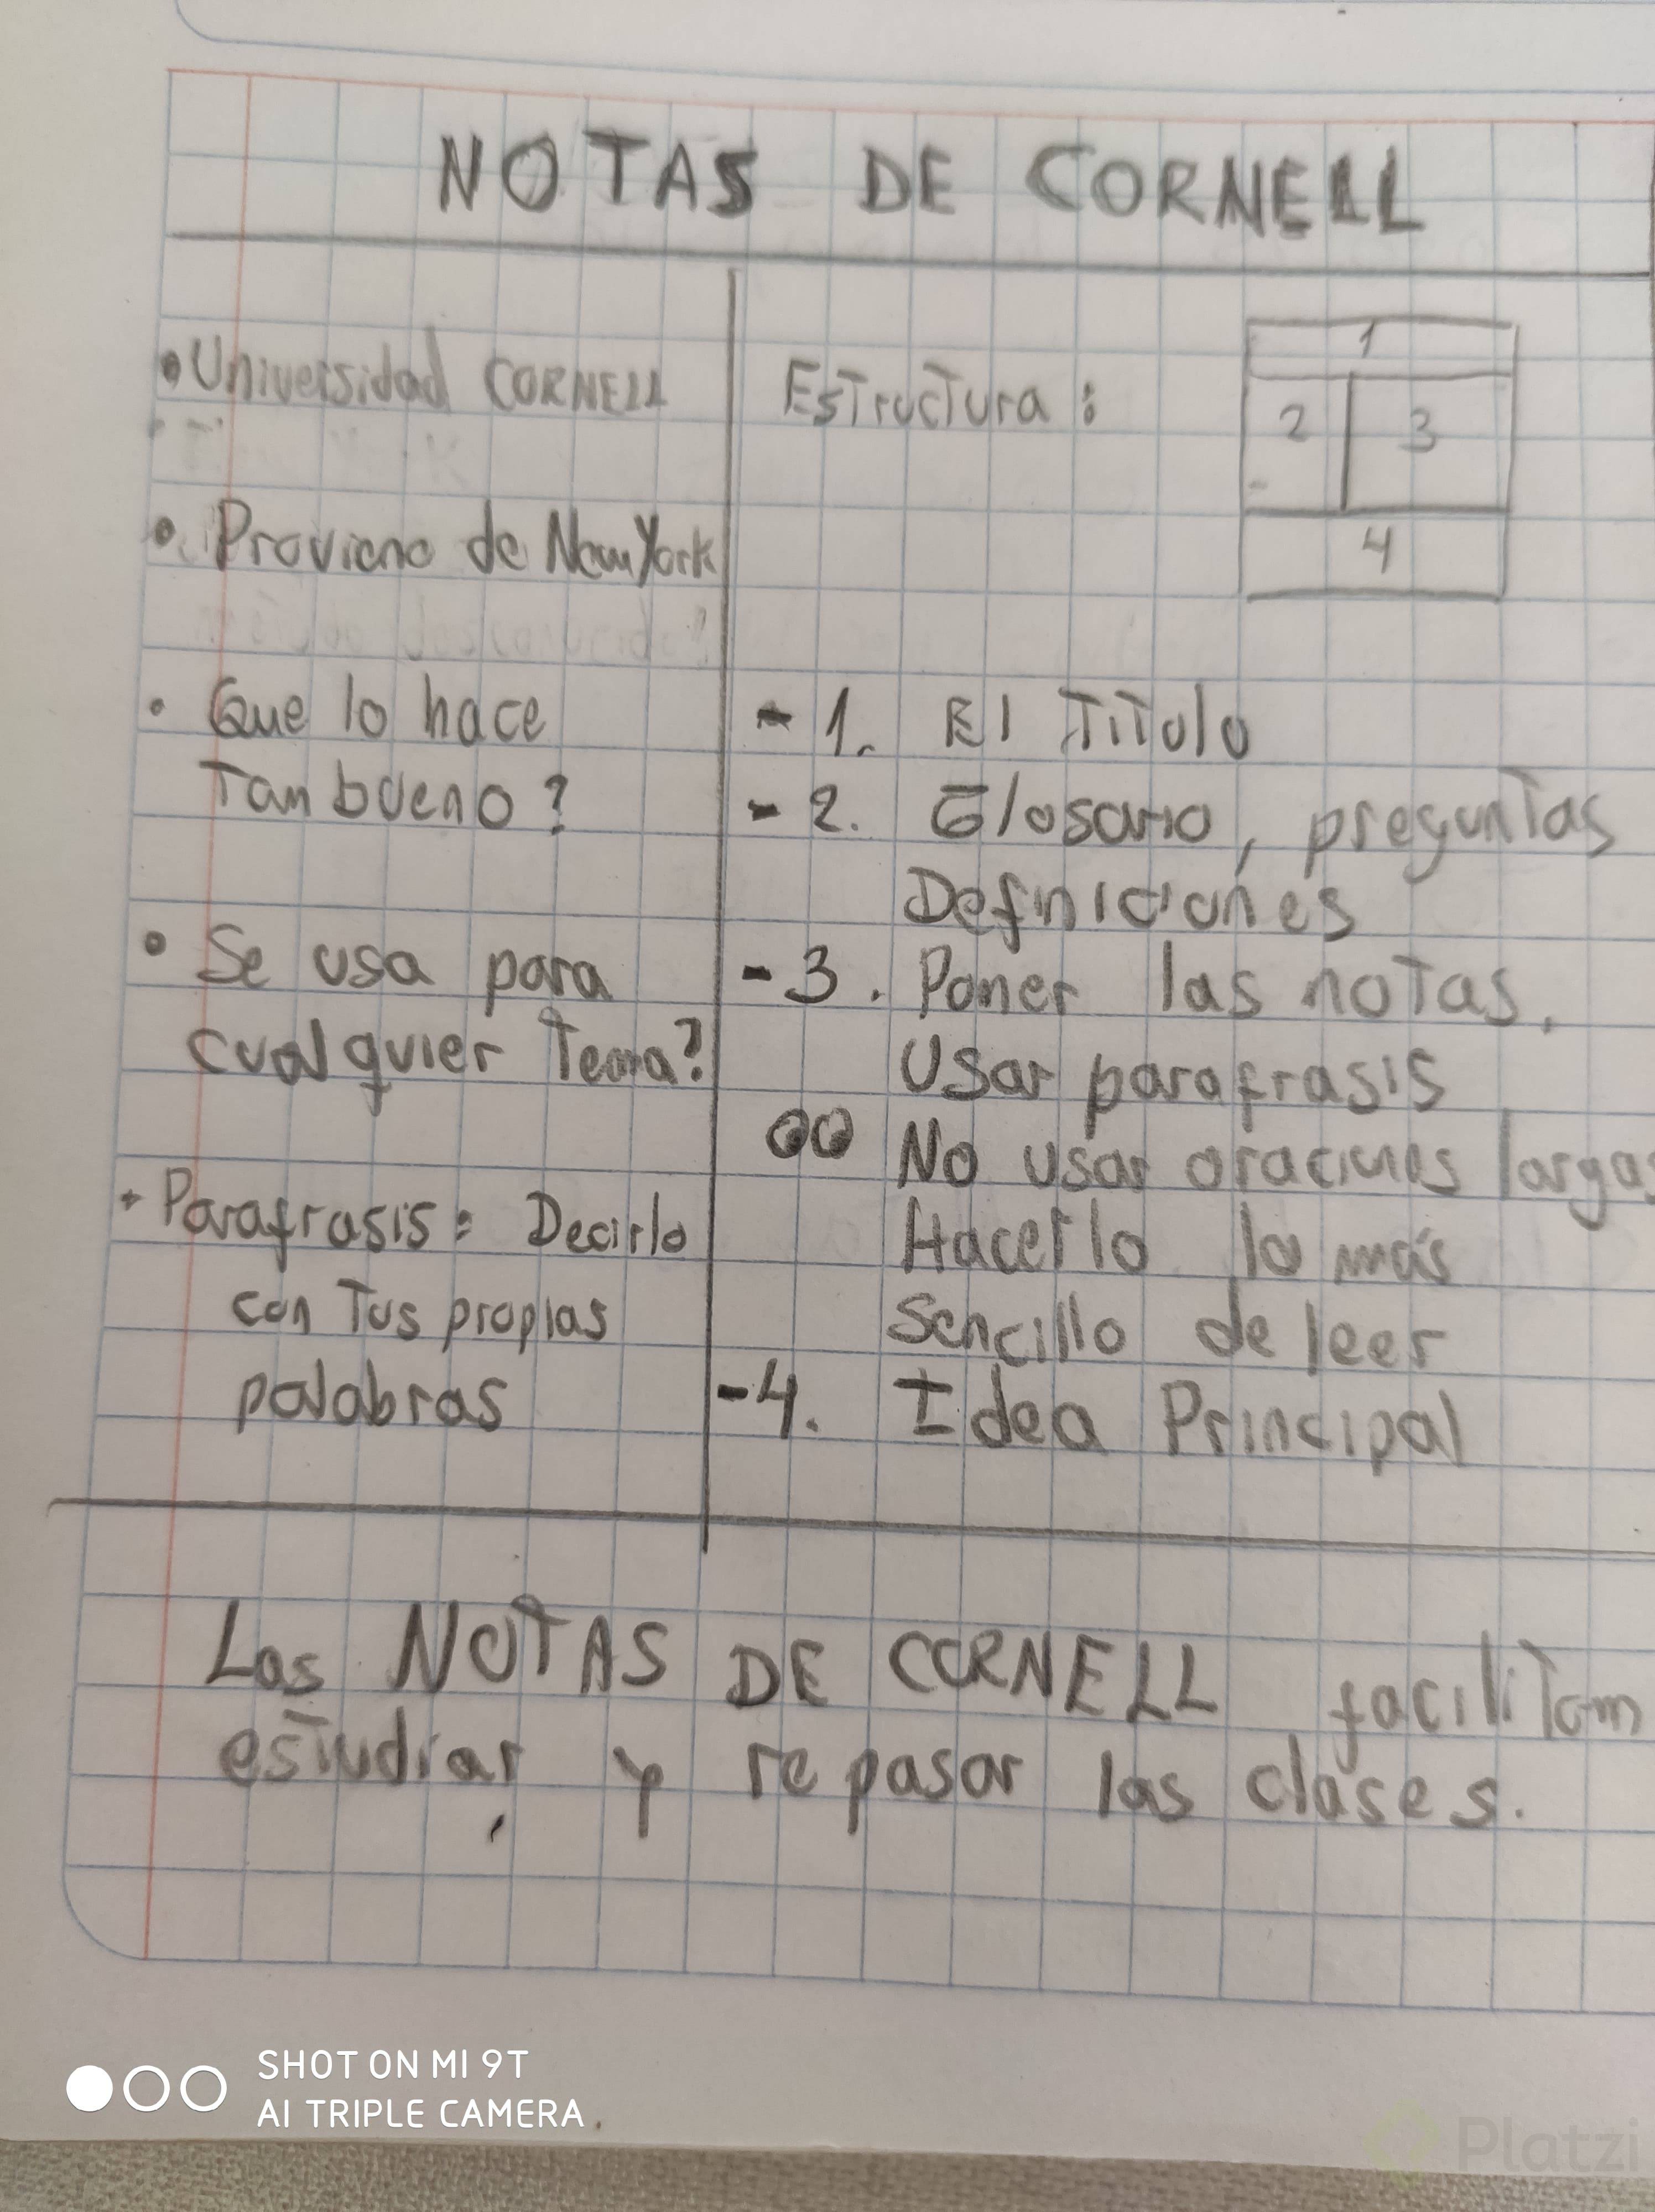 NOTAS DE CORNELL
• Universidad CORNELL
• Proviene de New York
• Que lo hace
Tan bueno?
• Se usa para
cualquier Tema?
• Parafrasis: Decirlo
con Tus propias
palabras
Estructura:
1
2 3
4
- 1. El Titulo
- 2. Glosario, preguntas
Definiciones
- 3. Poner las notas.
Usar parafrasis
No usar oraciones largas
Hacerlo lo más
Sencillo de leer
- 4. Idea Principal
Las NOTAS DE CORNELL facilitan
estudiar y repasar las clases.
SHOT ON MI 9T
AI TRIPLE CAMERA
Platzi